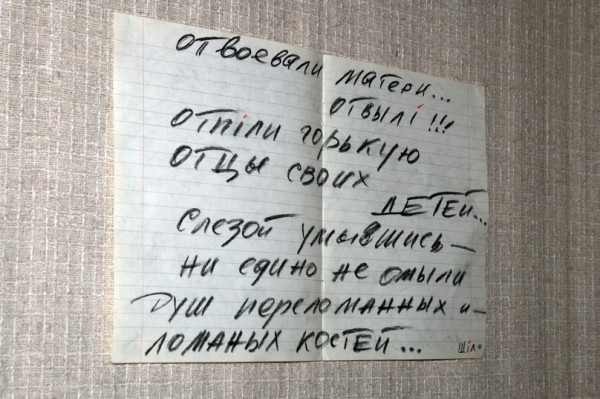 отвоевали матери...
отвылі!!!
отпіли горькую
отцы своих
ДЕТЕЙ...
слезой умывшись —
ни едино не омыли
душ переломанных и —
ломаных костей...
шіло